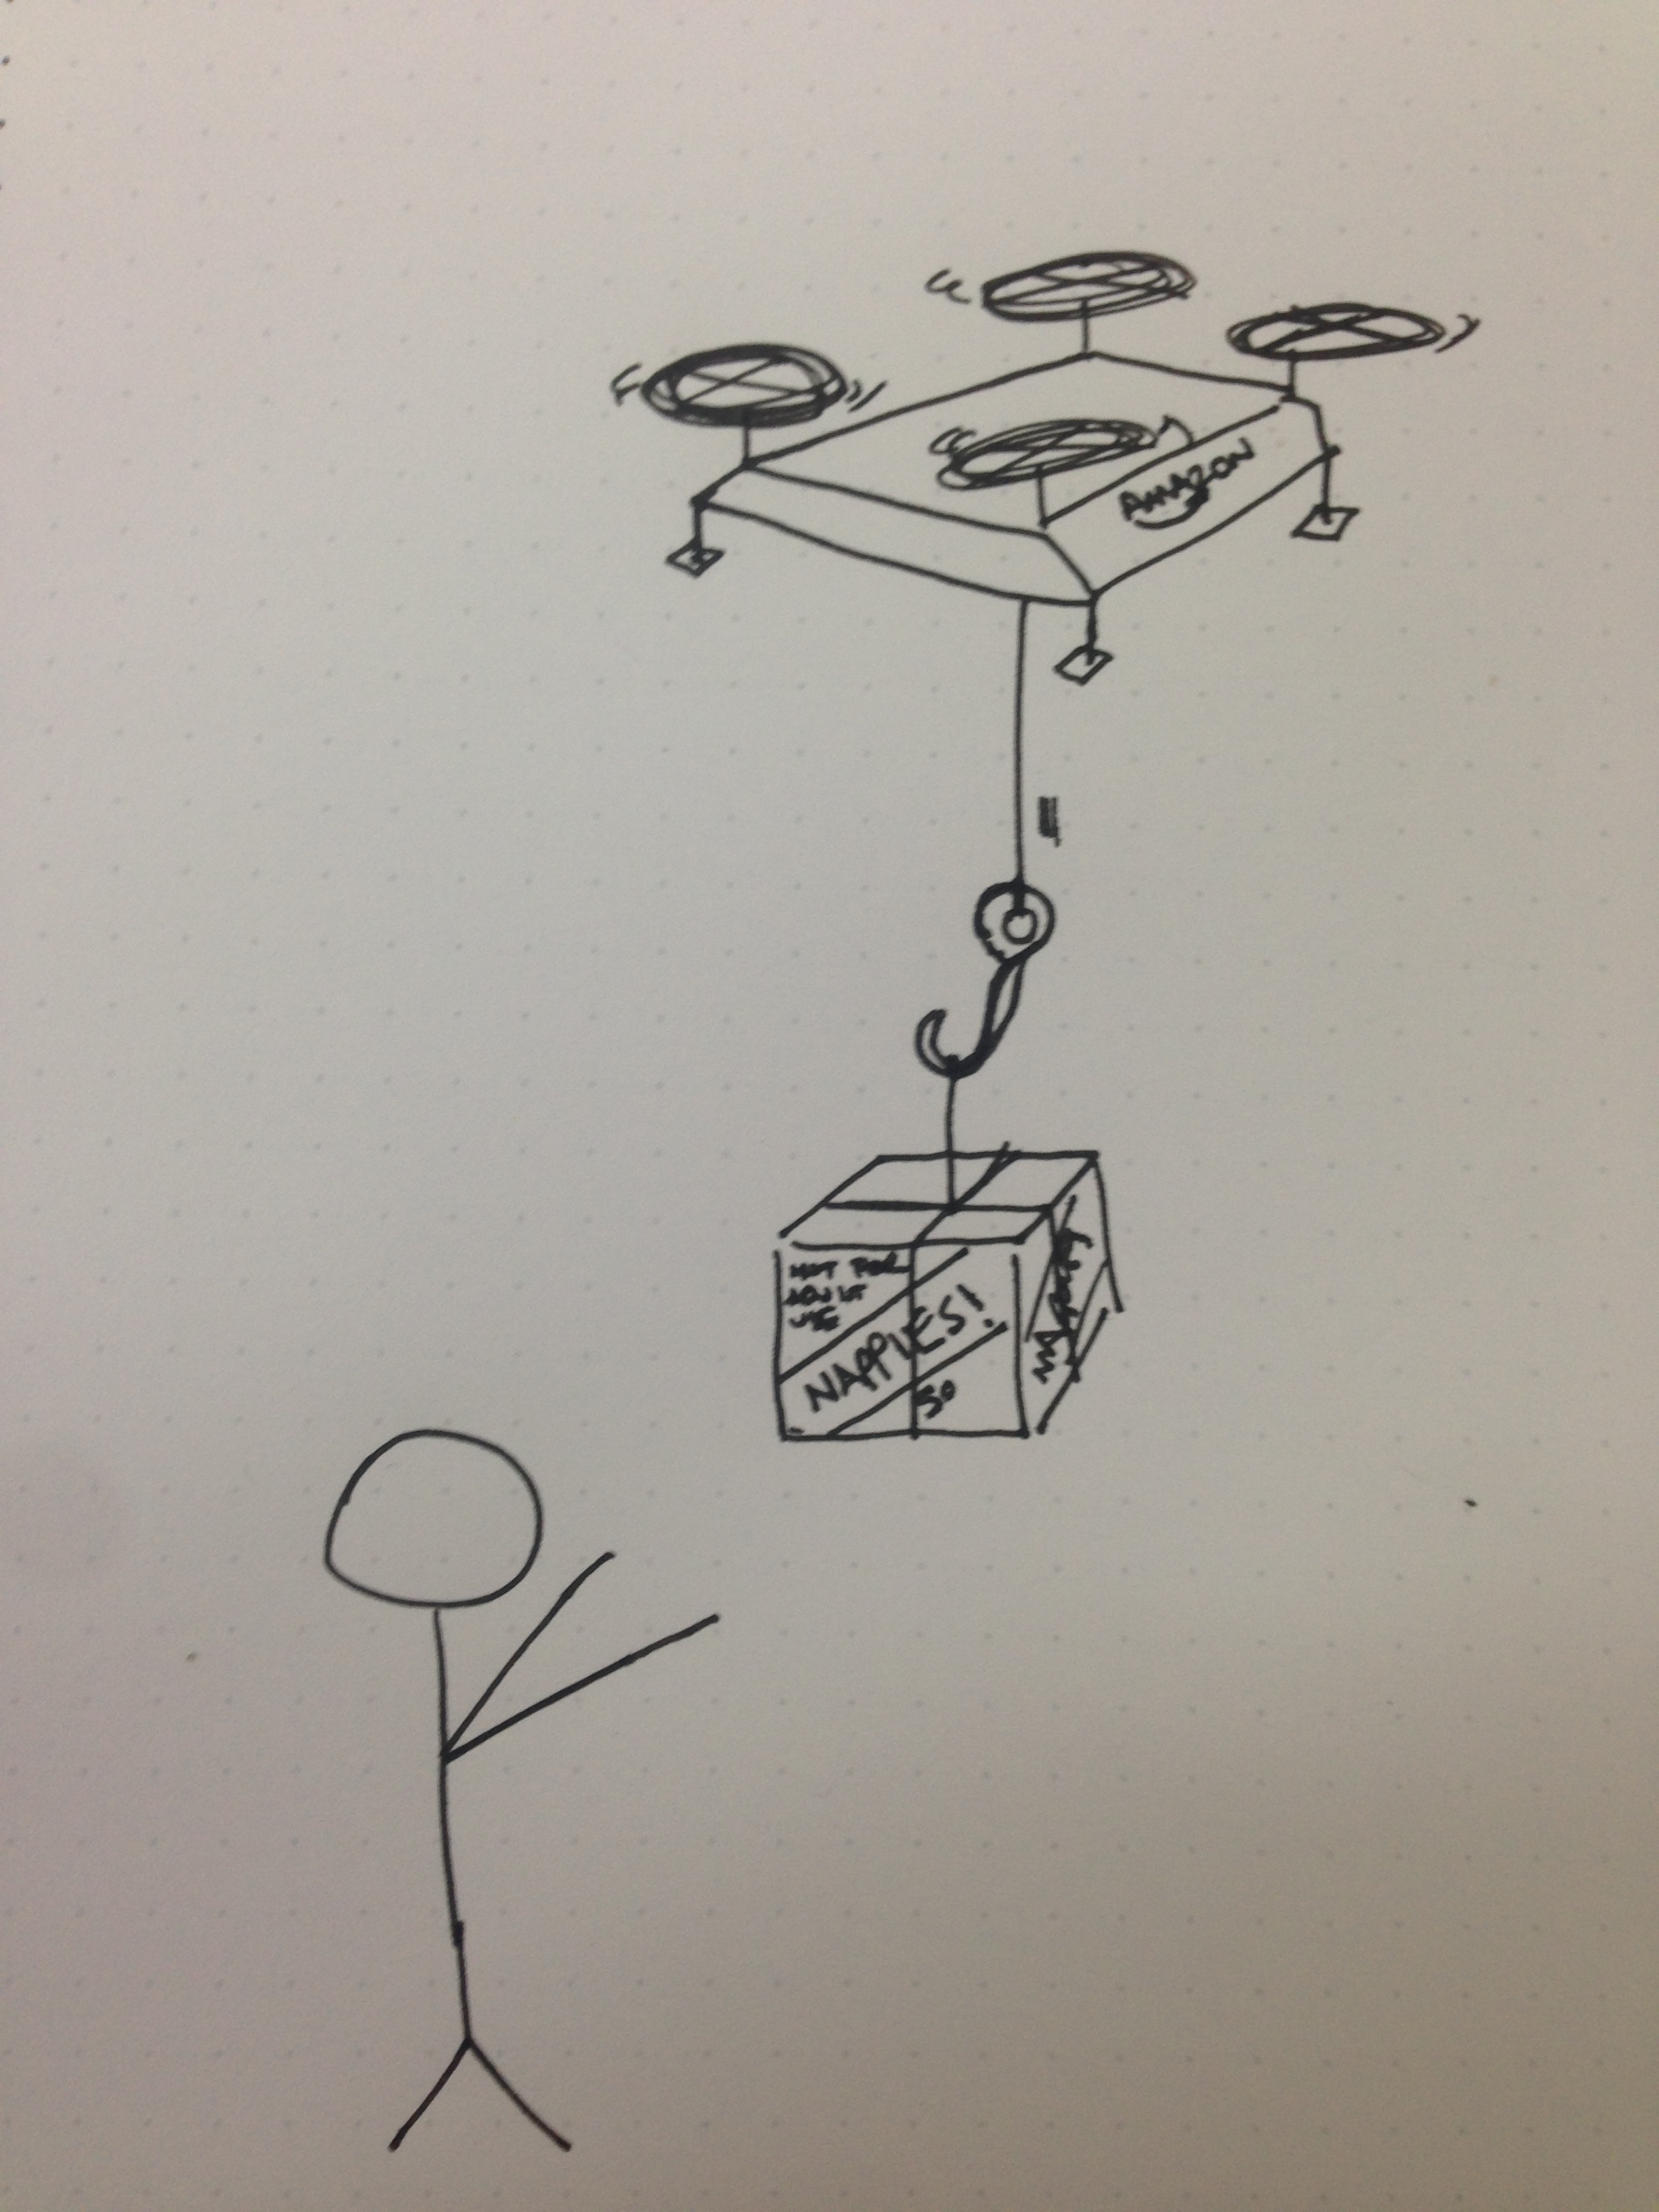 AMAZON
NOT FOR
ADULT
USE
NAPPIES!
50